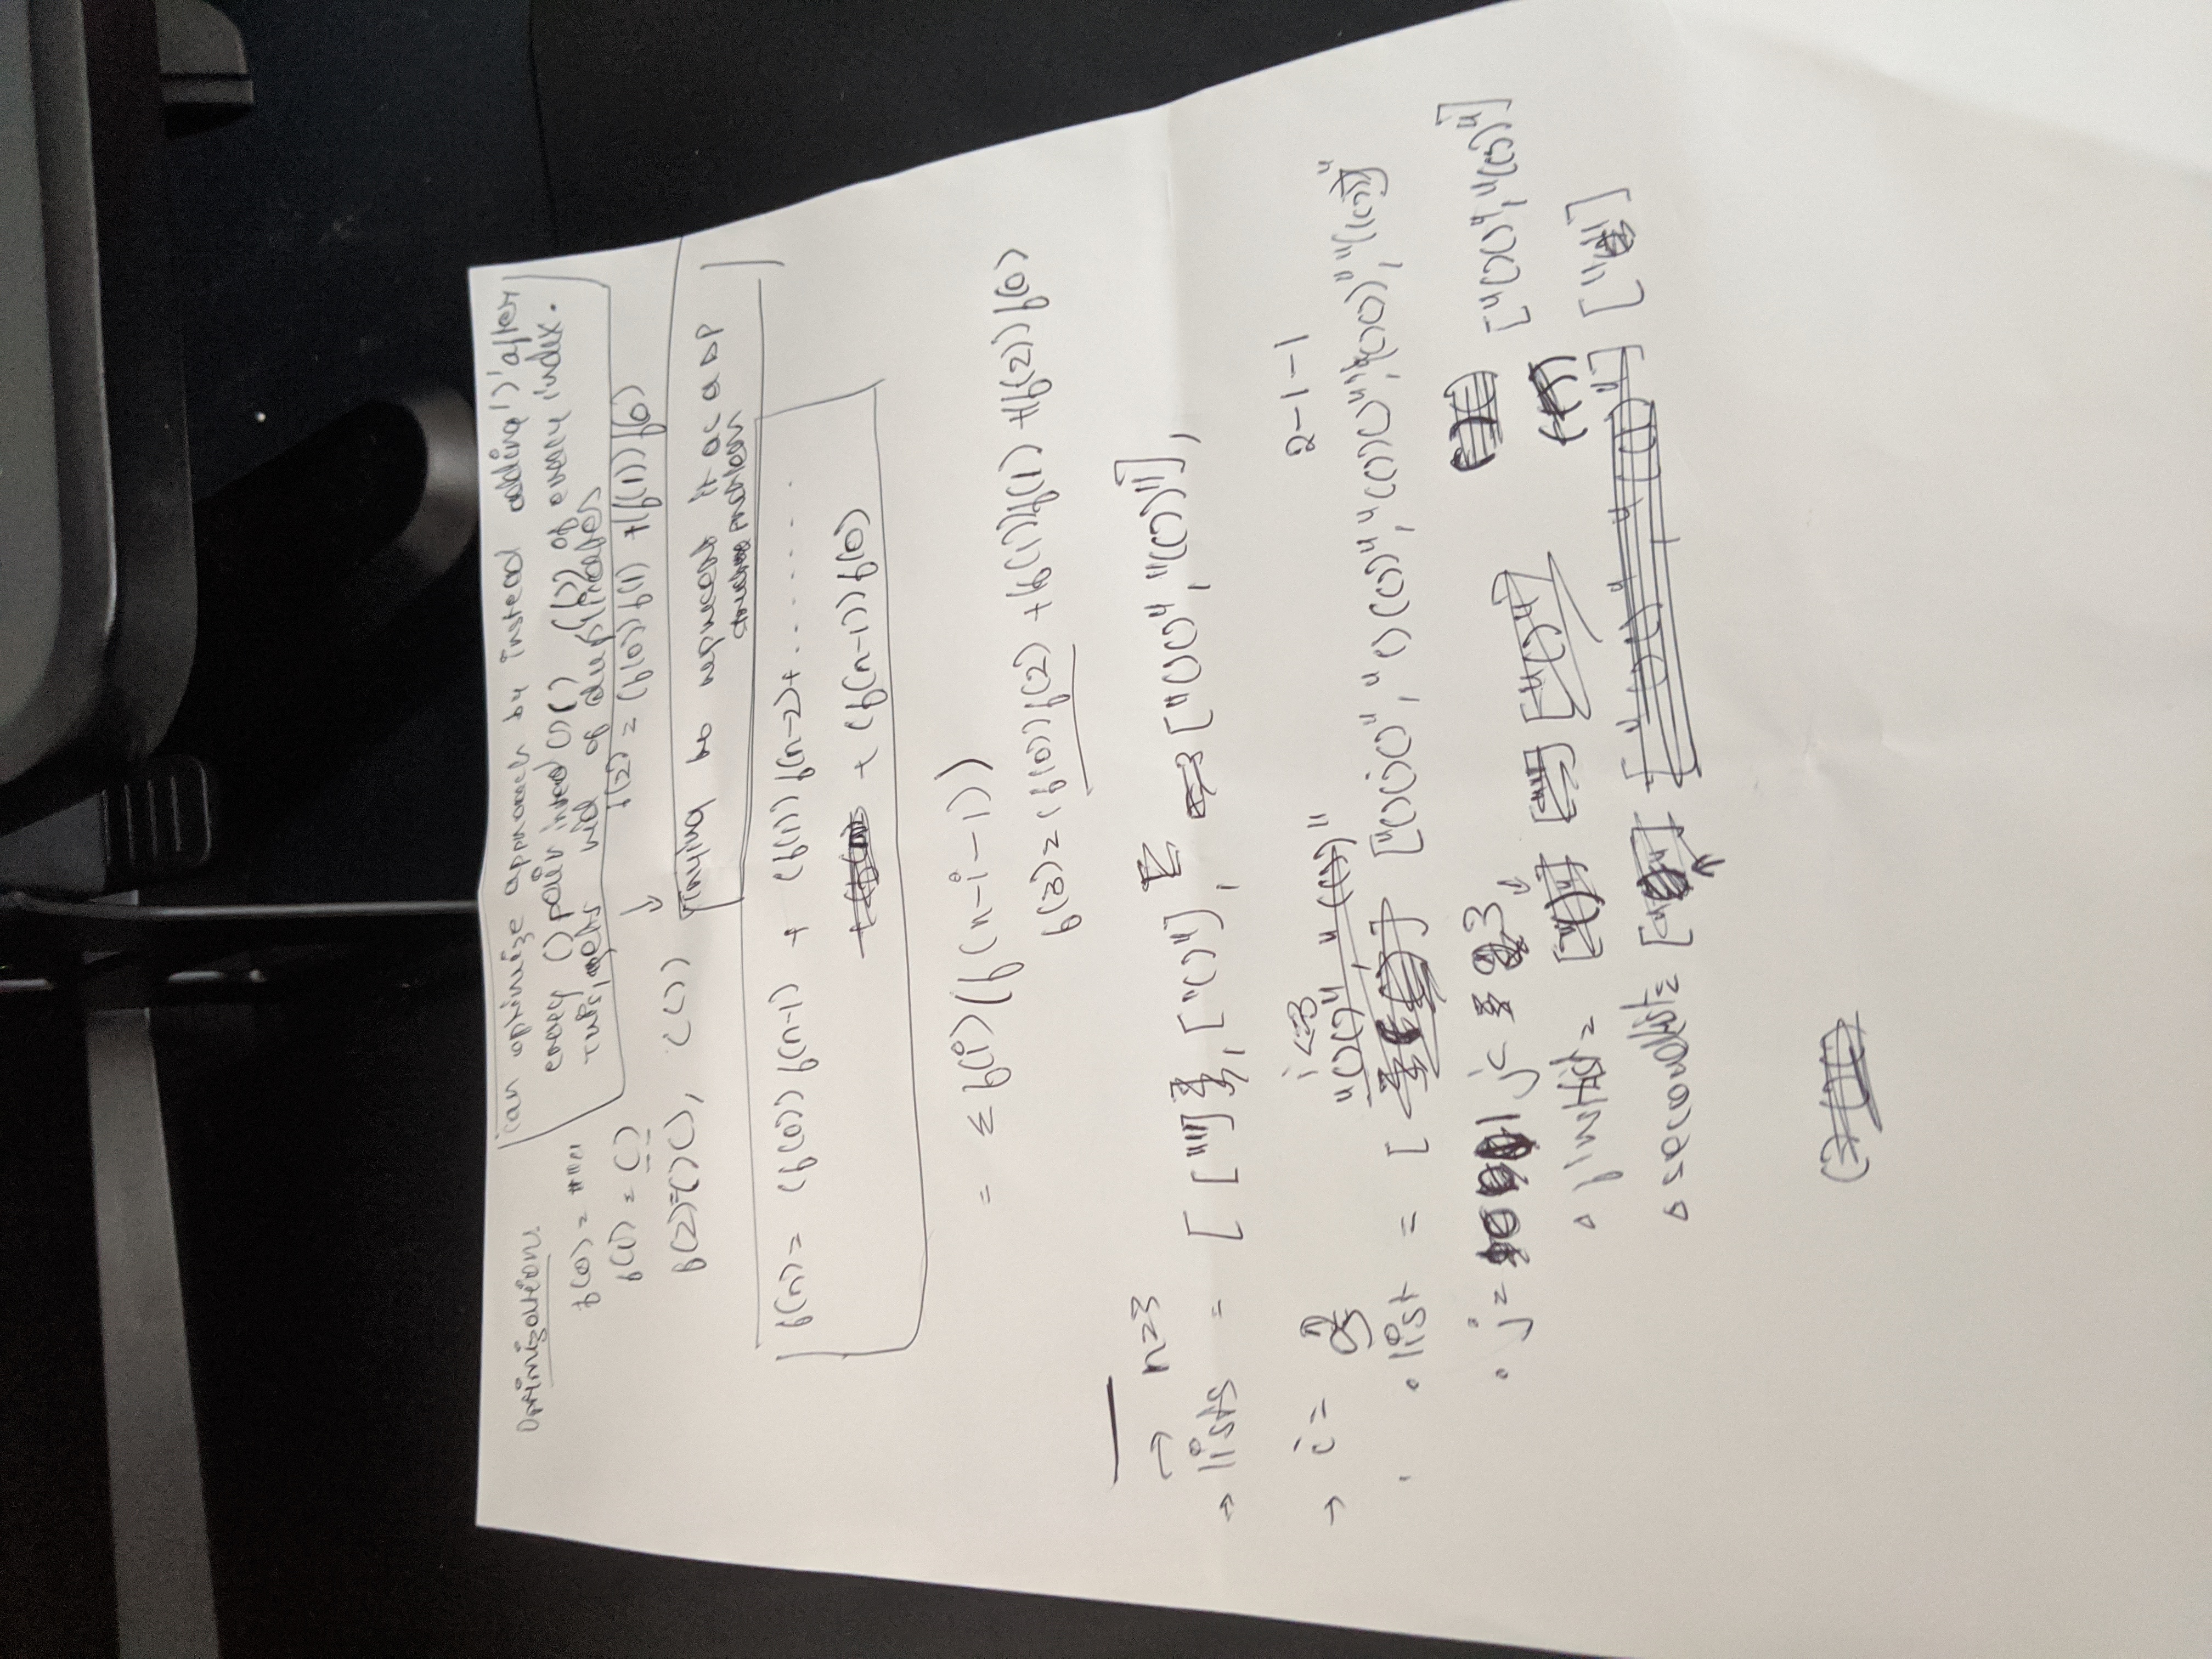 Optimization:
can optimize approach by instead adding ')' after
every () pair instead ()() (()) of every index.
This, gets rid of duplicates
f(0) = """"
f(1) = ()
f(2) = (f(0))f(1) + (f(1))f(0)
f(2)=()(), (())
↓
Trying to represent it as a DP
structure problem
f(n) = (f(0)) f(n-1) + (f(1)) f(n-2)+ .......
+ (f(n-1))f(0)
= Σ f(i)(f(n-i-1))
f(3) = (f(0))f(2) + (f(1))f(1) + (f(2))f(0)
→ n=3
→ lists = [ [""], ["()"], ["()()", "(())"],
→ i = 3 i<=3 2-1-1
"()()", "(())"
• list = [ ] ["()()()", "()(())", "(())()", "(()())", "((()))"
• j = 1 j< 3
firstlist = ["()"] [""] ["()"] ["()()", "(())"]
secondlist = ["()()", "(())"] [""]